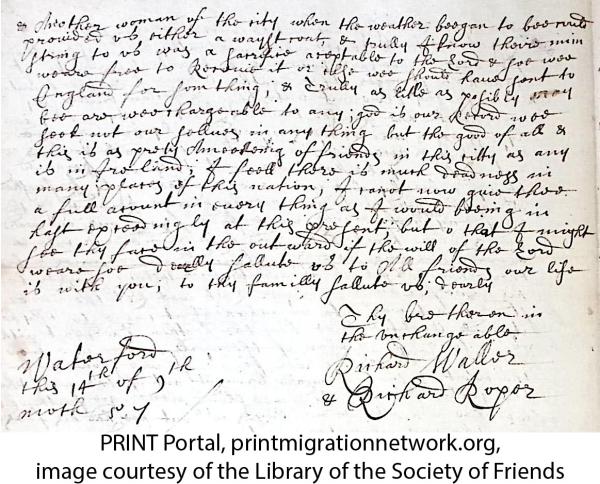 & Another woman of the citty when the weather beegan to bee could
provided us either a wayst coat, & truly I know theire min
string to us was a sacrifice aceptable to the Lord & soe wee
weare free to Receive it or else wee should have sent to
England for som thing, & Truly as litle as posibly may
bee are wee chargeable to any; god is our Record wee
seek not our sellves in any thing but the good of all &
this is as prety A meeteing of friends in this citty as any
is in Ireland; I feell there is much deadness in
many places of this nation; I canot now give thee
a full acount in every thing as I would beeing in
hast exceedingly at this present; but o that I might
see thy face in the outward if the will of the Lord
weare soe dearly sallute us to All friends our life
is with you; to thy familly sallute us; dearly
Thy bretheren in
the unchangeable
Richard Waller
& Richard Roper
Waterford
this 14th of 9th
moth 57
PRINT Portal, printmigrationnetwork.org,
image courtesy of the Library of the Society of Friends